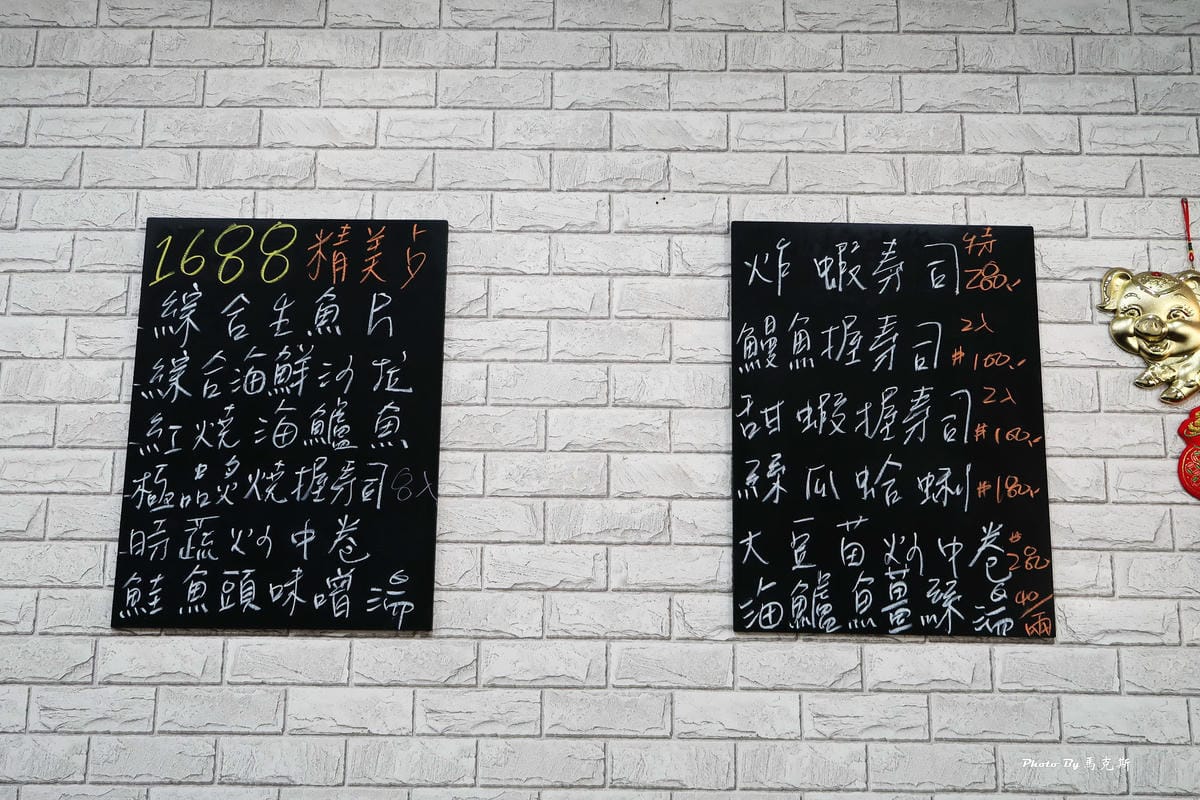 1688 精美点
綜合生魚片
綜合海鮮沙拉
紅燒海鱸魚
極品炙燒握壽司 8入
時蔬炒中卷
鮭魚頭味噌湯
炸蝦壽司 特280.-
鰻魚握壽司 2入 #160.-
甜蝦握壽司 2入 #160.-
絲瓜蛤蜊 #180.-
大豆苗炒中卷 #280
海鱸魚薑絲湯 40/兩
Photo By 馬克斯